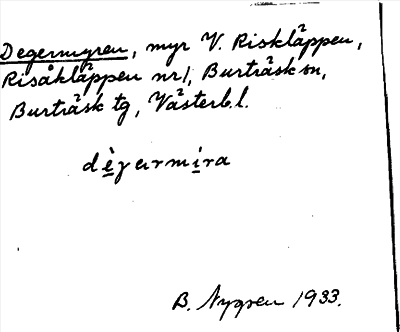 Degermyren, myr V. Riskläppen,
Risåkläppen nr 1, Burträsk sn,
Burträsk tg, Västerb. l.
dègærmira
B. Nygren 1933.